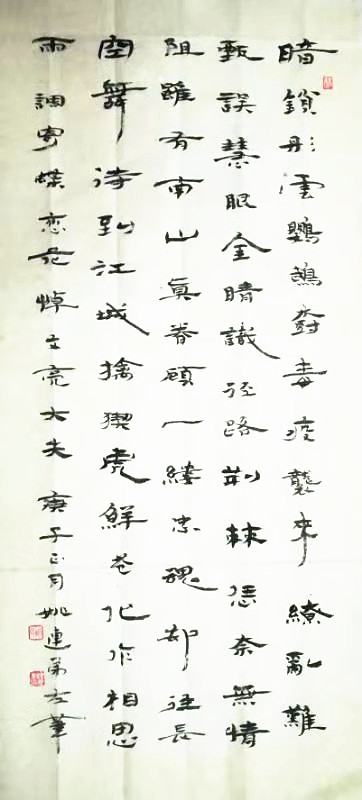 暗鎖彤雲鸚鵡毒疫襲來繚亂難
甄誤慧眼金睛識徑路荊棘恁奈無情
阻雖有南山真眷顧一縷忠魂却往長
空舞待到江城擒猰虎鮮花化作相思
雨調寄蝶恋花悼文亮大夫庚子正月姚連弟左筆